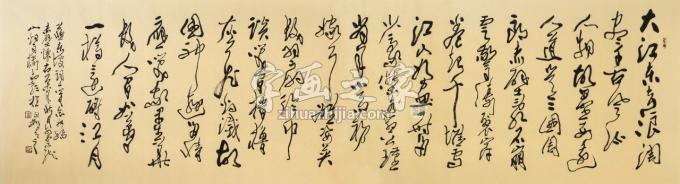 大江东去浪淘
尽千古风流
人物故垒西边
人道是三国周
郎赤壁乱石崩
云惊涛裂岸
卷起千堆雪
江山如画一时多
少豪杰遥想公瑾
当年小乔初
嫁了雄姿英
发羽扇纶巾
谈笑间樯橹
灰飞烟灭故
国神游多情
应笑我早生华
发人间如梦
一樽还酹江月
字画之家